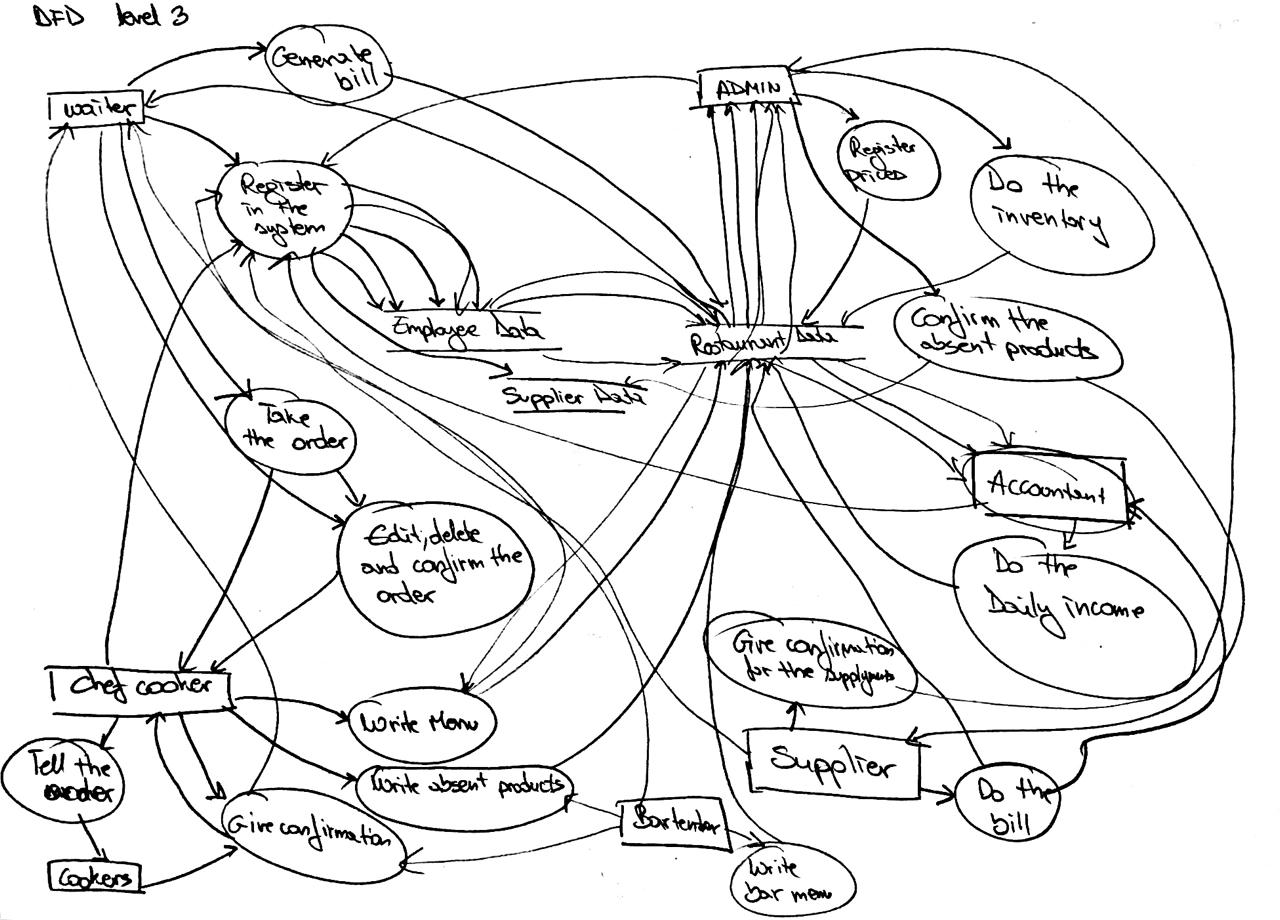 DFD level 3
Generate
bill
waiter
ADMIN
Register
prices
Do the
inventory
Register
in the
system
Employee Data
Restaurant Data
Confirm the
absent products
Supplier Data
Take
the order
Accountent
Edit, delete
and confirm the
order
Do the
Daily income
Give confirmation
for the supplyments
Chef cooker
Write Menu
Supplier
Tell the
order
Write absent products
Do the
bill
Give confirmation
Bartender
Cookers
Write
bar menu